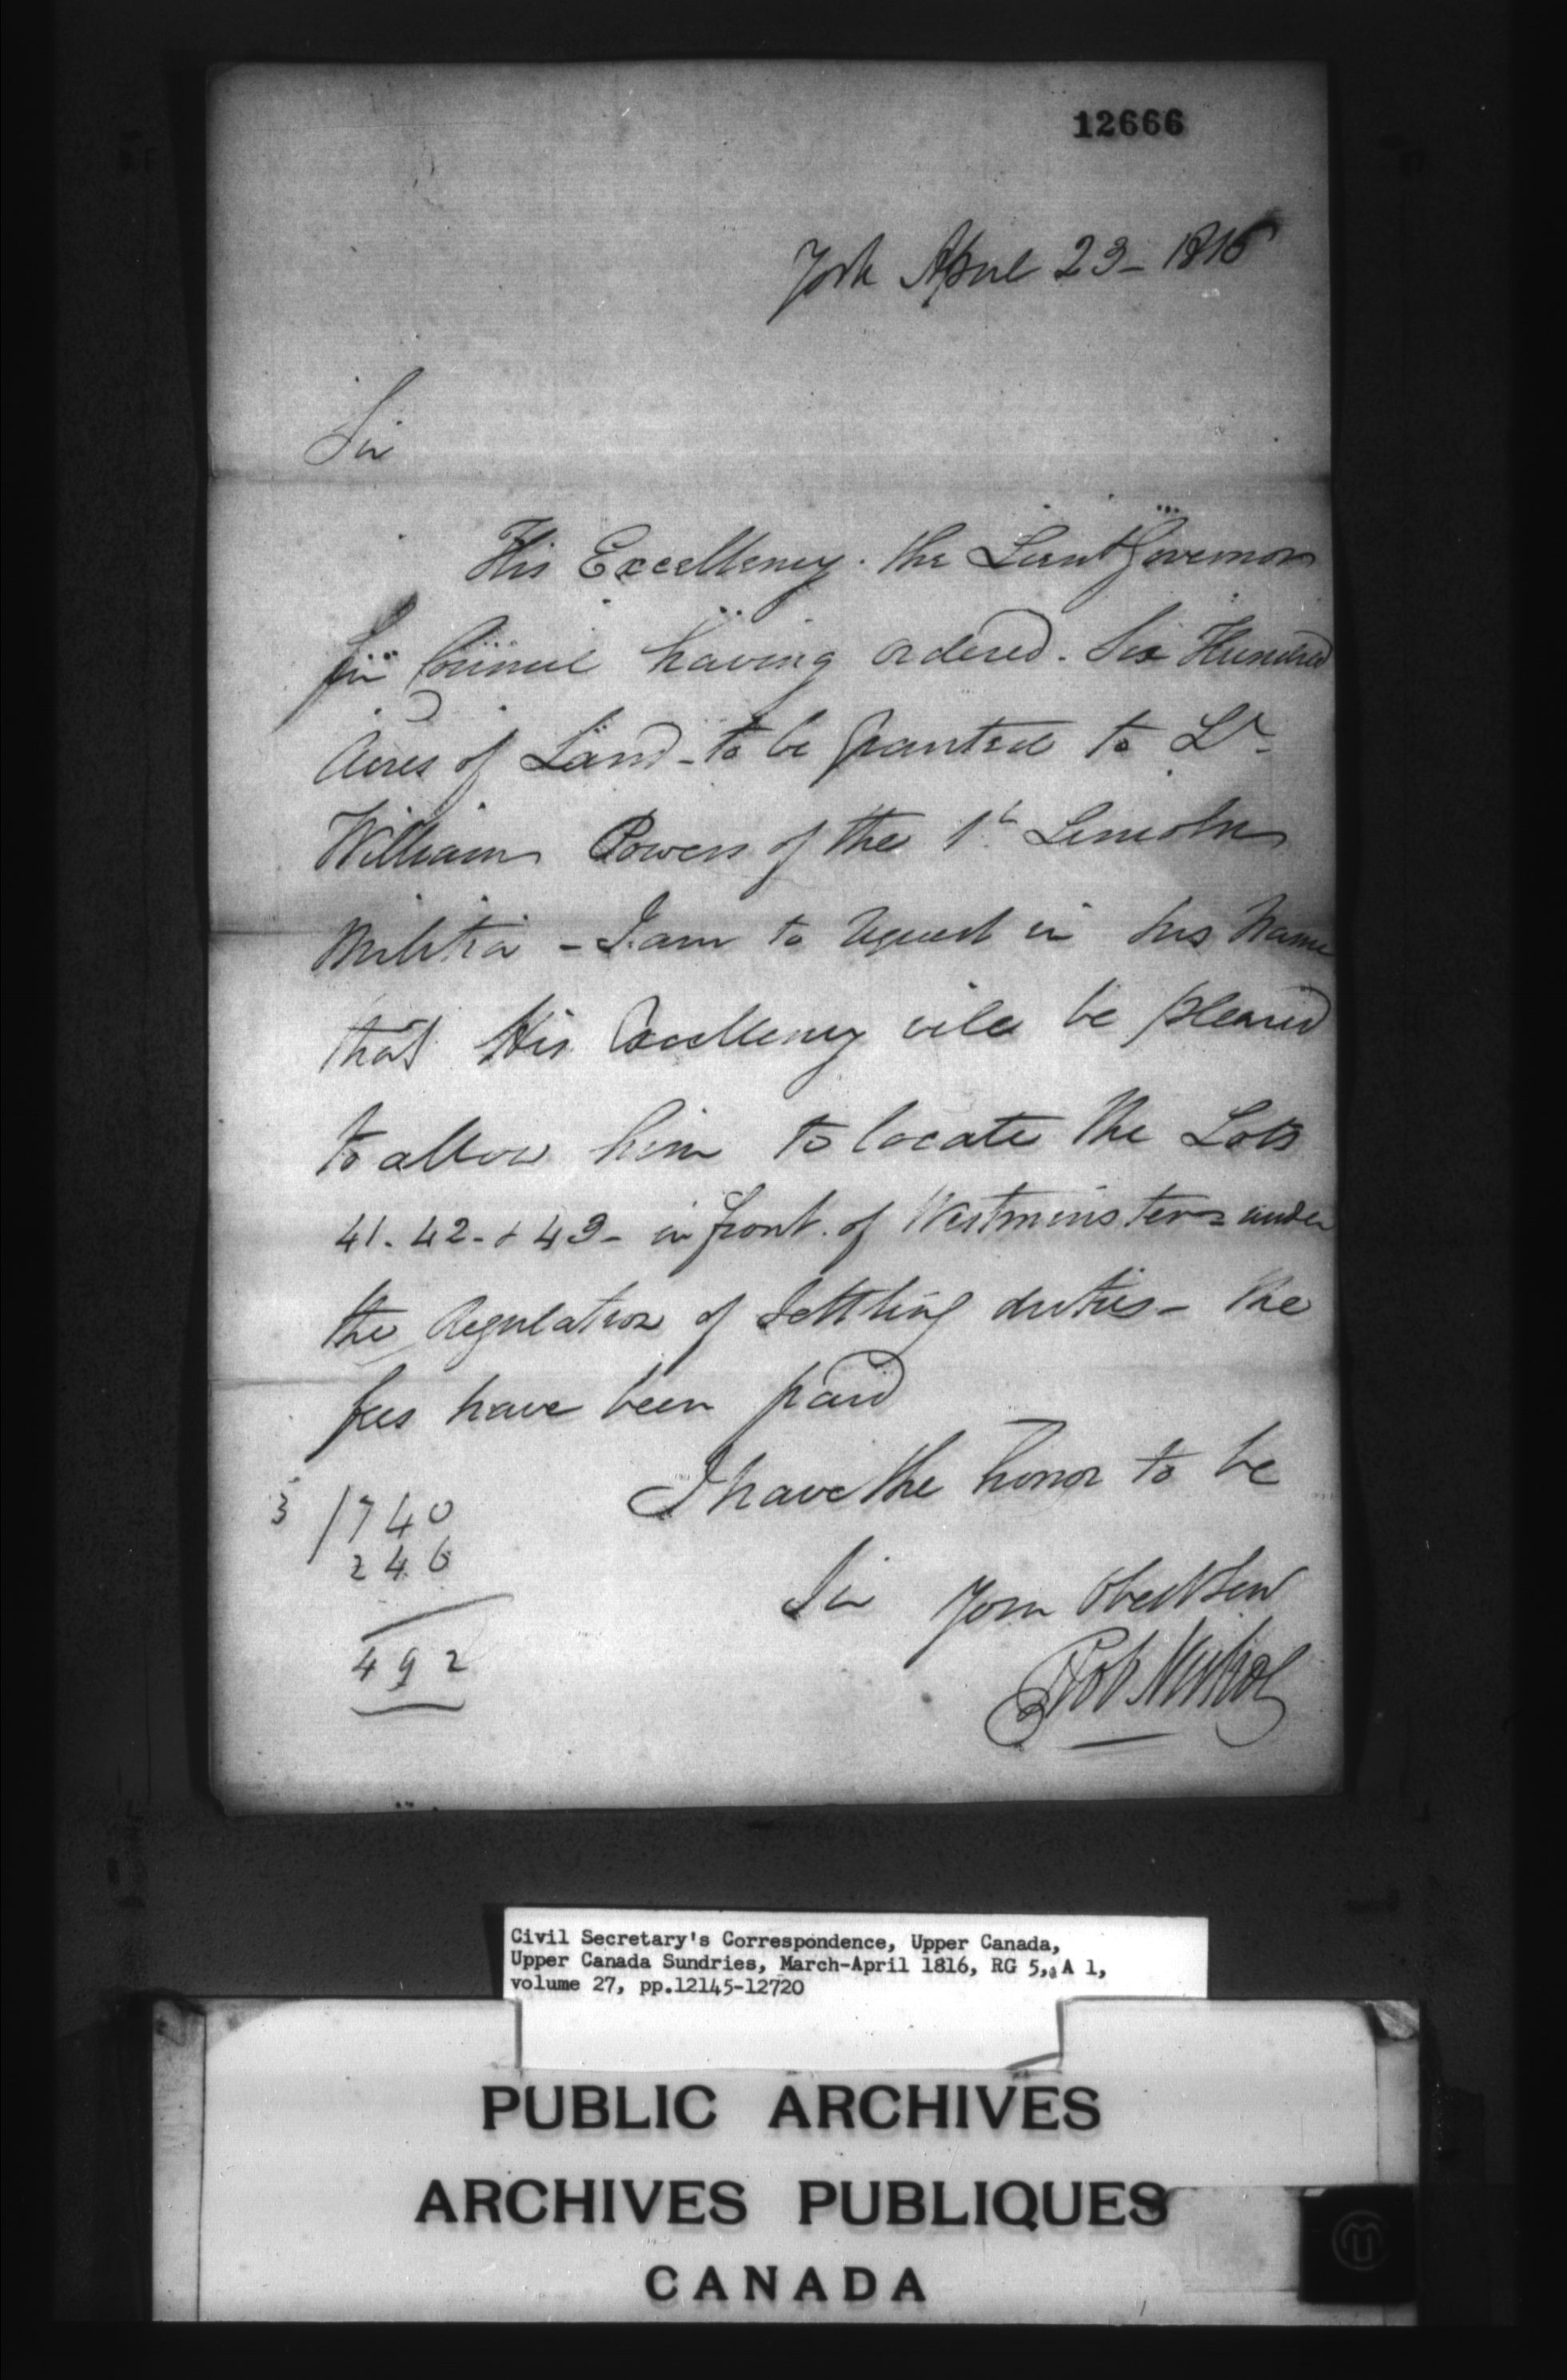 12666
York April 23 - 1816
Sir
His Excellency. the Lieut Governor
In Council having ordered. Six Hundred
Acres of Land - to be Granted to Lt
William Powers of the 1t Lincoln
Militia - I am to request in his Name
that His Excellency will be pleased
to allow him to locate the Lots
41. 42. & 43 - in front of Westminster = under
the Regulation of Settling duties - the
fees have been paid
I have the honor to be
Sir Your Obedt Serv
Rob Nichol
3 / 740
246
492
Civil Secretary's Correspondence, Upper Canada,
Upper Canada Sundries, March-April 1816, RG 5, A 1,
volume 27, pp.12145-12720
PUBLIC ARCHIVES
ARCHIVES PUBLIQUES
CANADA